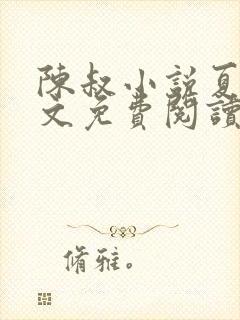 陳叔小說夏
文免費閱讀
脩雅。